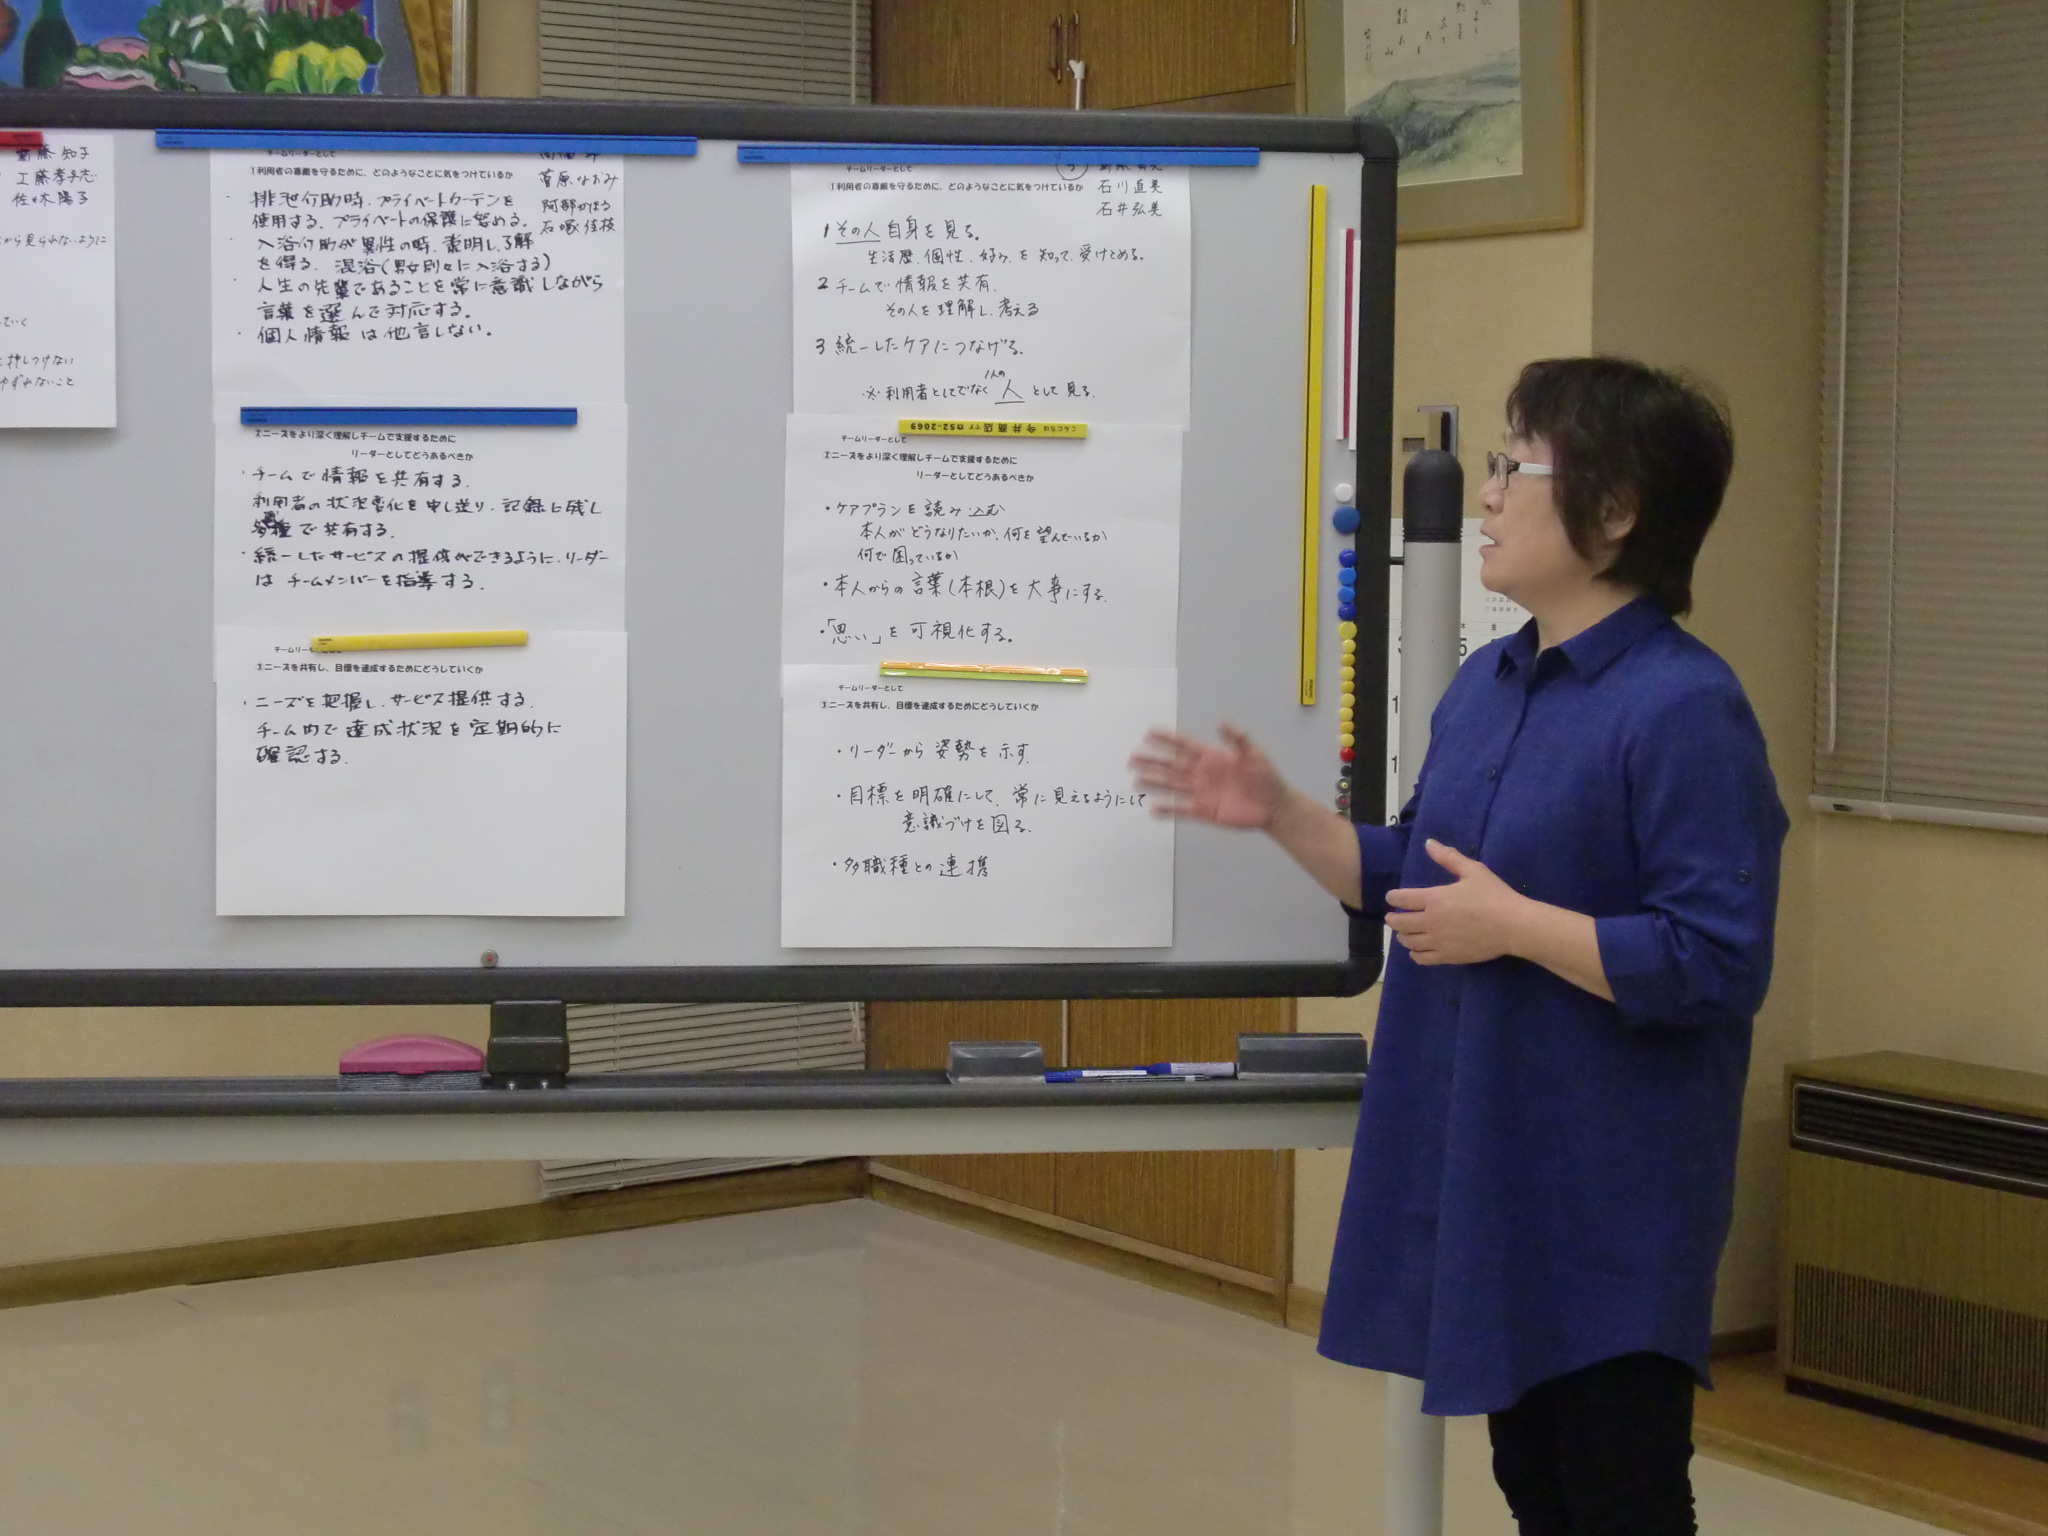 斎藤 知子
工藤孝志
佐々木陽子
から見られないように
ていく
と押しつけない
ゆずれないこと
チームリーダーとして
①利用者の尊厳を守るために、どのようなことに気をつけているか
菅原なおみ
阿部かほる
石塚佳枝
・排泄介助時、プライベートカーテンを
使用する。プライベートの保護に努める。
・入浴介助が異性の時、説明し、了解
を得る。混浴(男女別々に入浴する)
・人生の先輩であることを常に意識しながら
言葉を選んで対応する。
・個人情報は他言しない。
②ニーズをより深く理解しチームで支援するために
リーダーとしてどうあるべきか
・チームで情報を共有する。
利用者の状況変化を申し送り、記録に残し
種で共有する。
・統一したサービスの提供ができるように、リーダー
はチームメンバーを指導する。
チームリーダーとして
③ニーズを共有し、目標を達成するためにどうしていくか
・ニーズを把握し、サービス提供する。
チーム内で達成状況を定期的に
確認する。
チームリーダーとして
①利用者の尊厳を守るために、どのようなことに気をつけているか
石川直美
石井弘美
1 その人自身を見る。
生活歴、個性、好み、を知って、受けとめる。
2 チームで情報を共有。
その人を理解し、考える
3 統一したケアにつなげる。
※利用者としてでなく 1人の人として見る。
こんにちは 今井商店です ☎52-2069
チームリーダーとして
②ニーズをより深く理解しチームで支援するために
リーダーとしてどうあるべきか
・ケアプランを読み込む
本人がどうなりたいか、何を望んでいるか
何で困っているか
・本人からの言葉(本根)を大事にする。
・「思い」を可視化する。
チームリーダーとして
③ニーズを共有し、目標を達成するためにどうしていくか
・リーダーから姿勢を示す。
・目標を明確にして、常に見えるようにして
意識づけを図る。
・多職種との連携